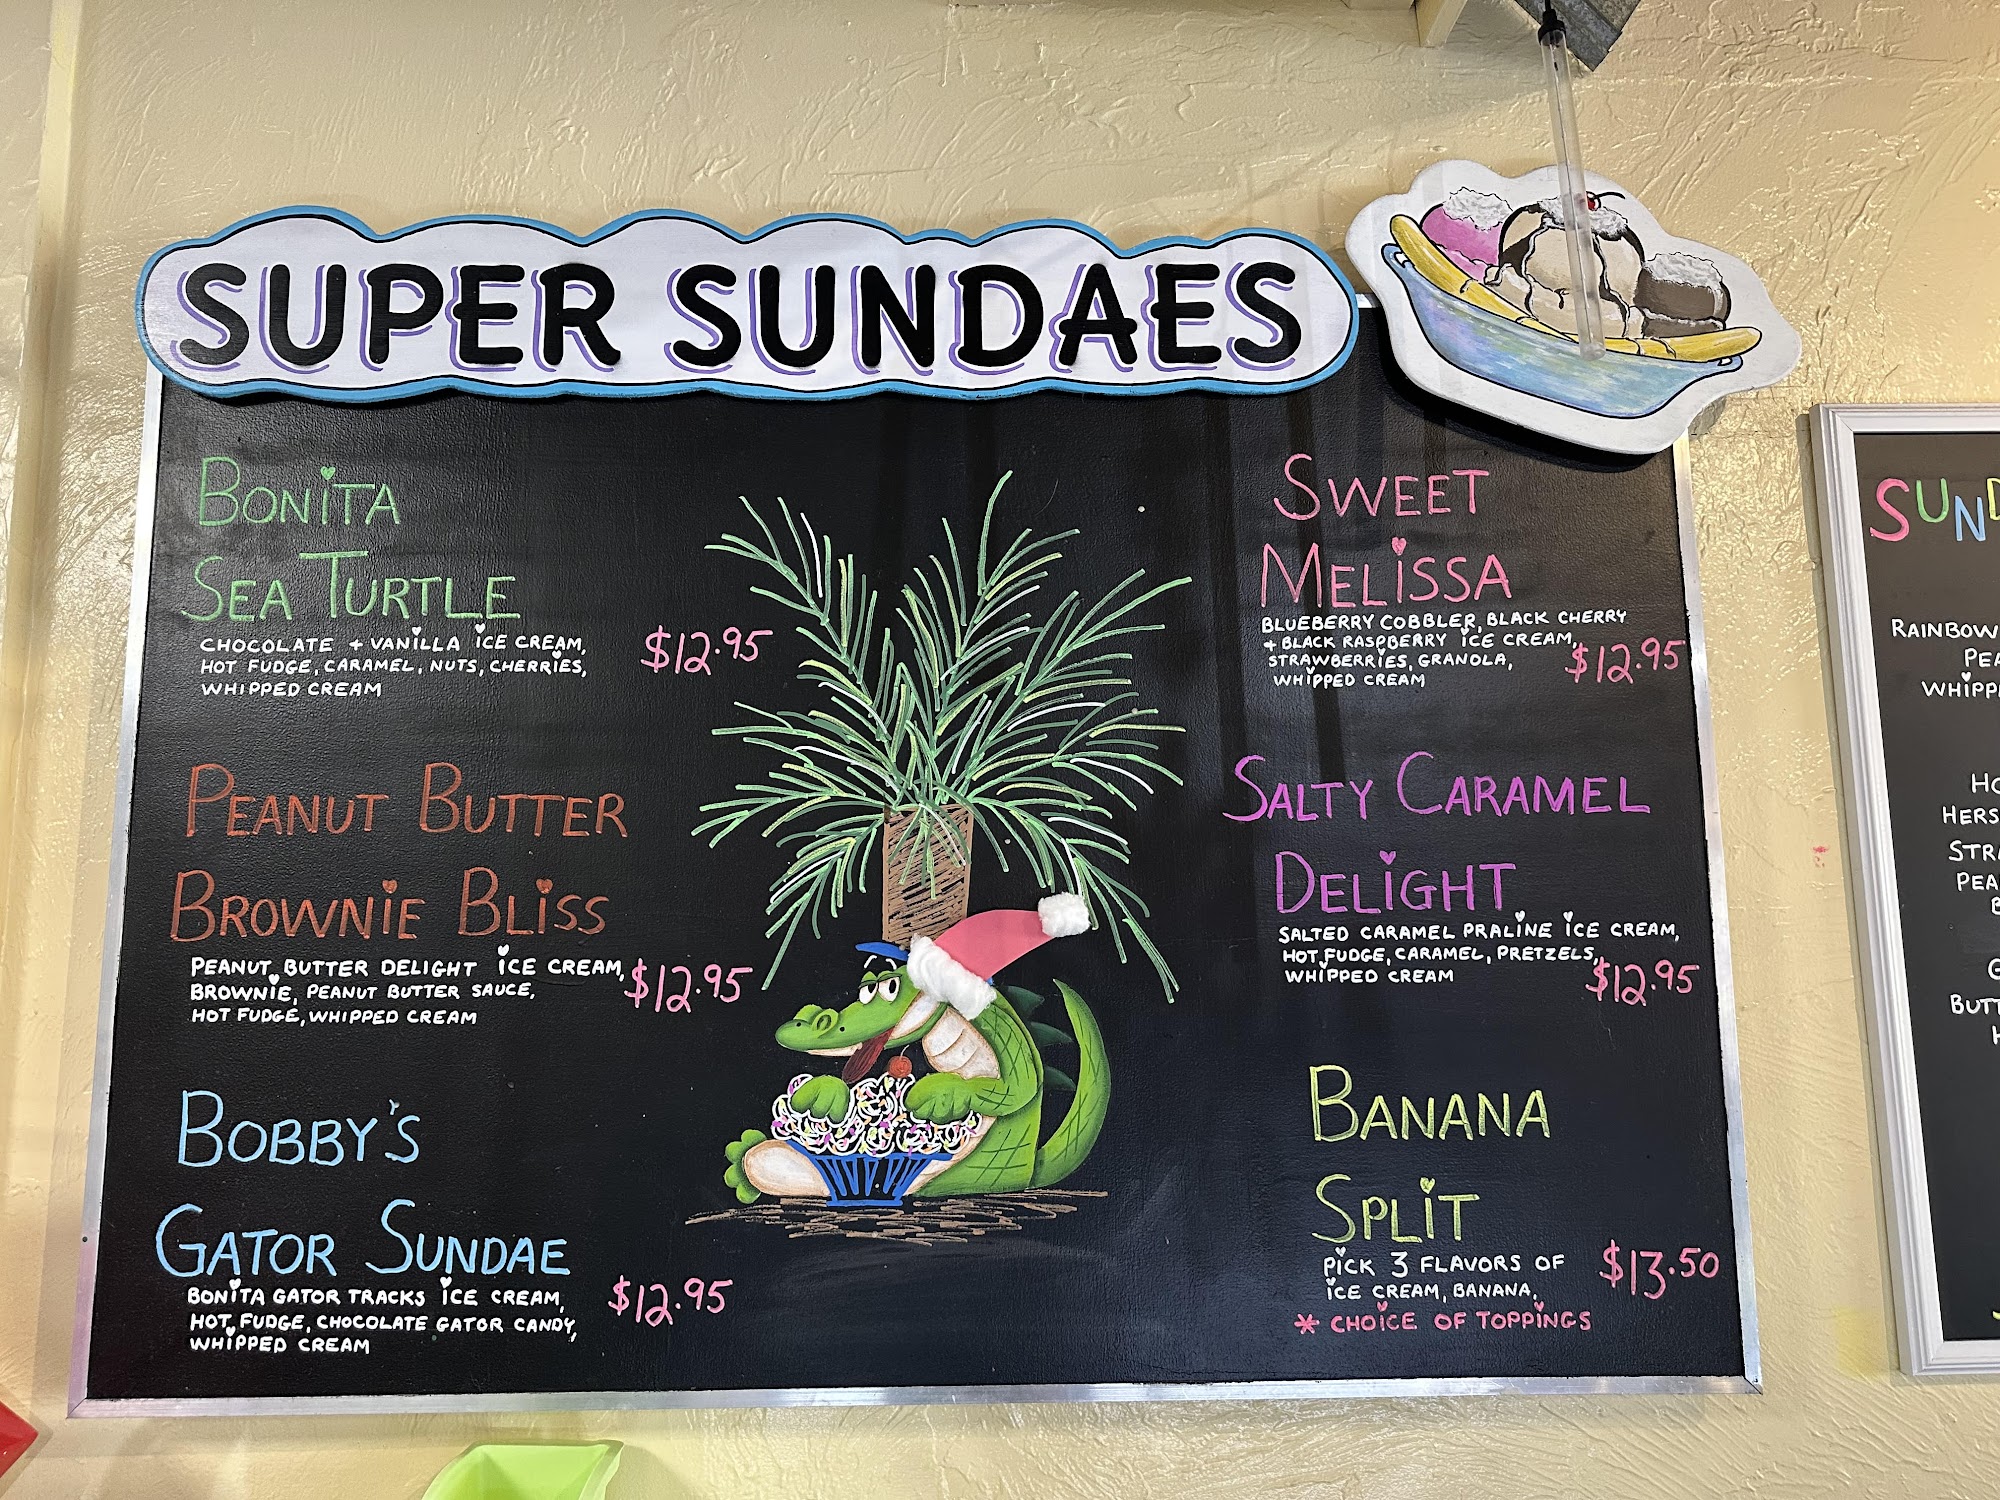 SUPER SUNDAES
BONiTA
SEA TURTLE
CHOCOLATE + VANiLLA iCE CREAM,
HOT FUDGE, CARAMEL, NUTS, CHERRiES,
WHIPPED CREAM
$12.95
PEANUT BUTTER
BROWNiE BLiSS
PEANUT BUTTER DELIGHT iCE CREAM,
BROWNiE, PEANUT BUTTER SAUCE,
HOT FUDGE, WHIPPED CREAM
$12.95
BOBBY'S
GATOR SUNDAE
BONiTA GATOR TRACKS iCE CREAM,
HOT FUDGE, CHOCOLATE GATOR CANDY,
WHiPPED CREAM
$12.95
SWEET
MELiSSA
BLUEBERRY COBBLER, BLACK CHERRY
+ BLACK RASPBERRY iCE CREAM,
STRAWBERRiES, GRANOLA,
WHiPPED CREAM
$12.95
SALTY CARAMEL
DELiGHT
SALTED CARAMEL PRALiNE iCE CREAM,
HOT FUDGE, CARAMEL, PRETZELS,
WHiPPED CREAM
$12.95
BANANA
SPLiT
PiCK 3 FLAVORS OF
iCE CREAM, BANANA,
* CHOiCE OF TOPPiNGS
$13.50
RAINBOW